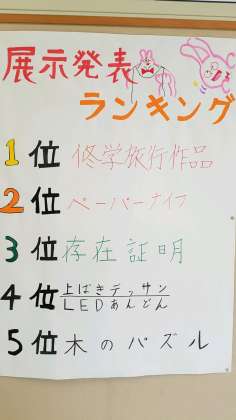 展示発表
ランキング
1位 修学旅行作品
2位 ペーパーナイフ
3位 存在証明
4位 上ばきデッサン
LEDあんどん
5位 木のパズル